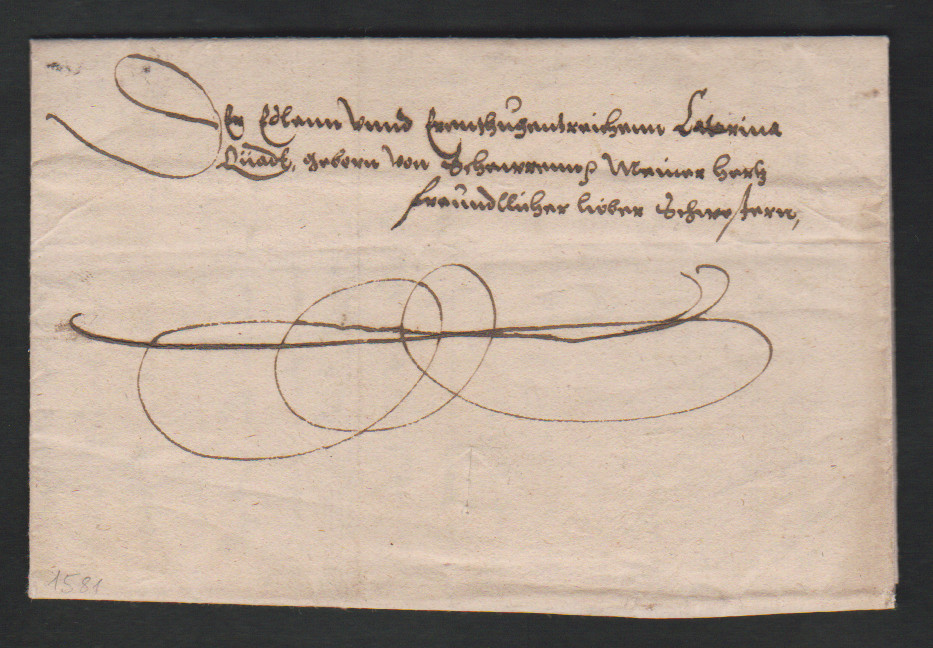 Der Edlenn vnnd Erenthugentreichenn Catarina
Quadtz, geborn von Meiner hertz
freundtlicher lieber Schwestern,
1581